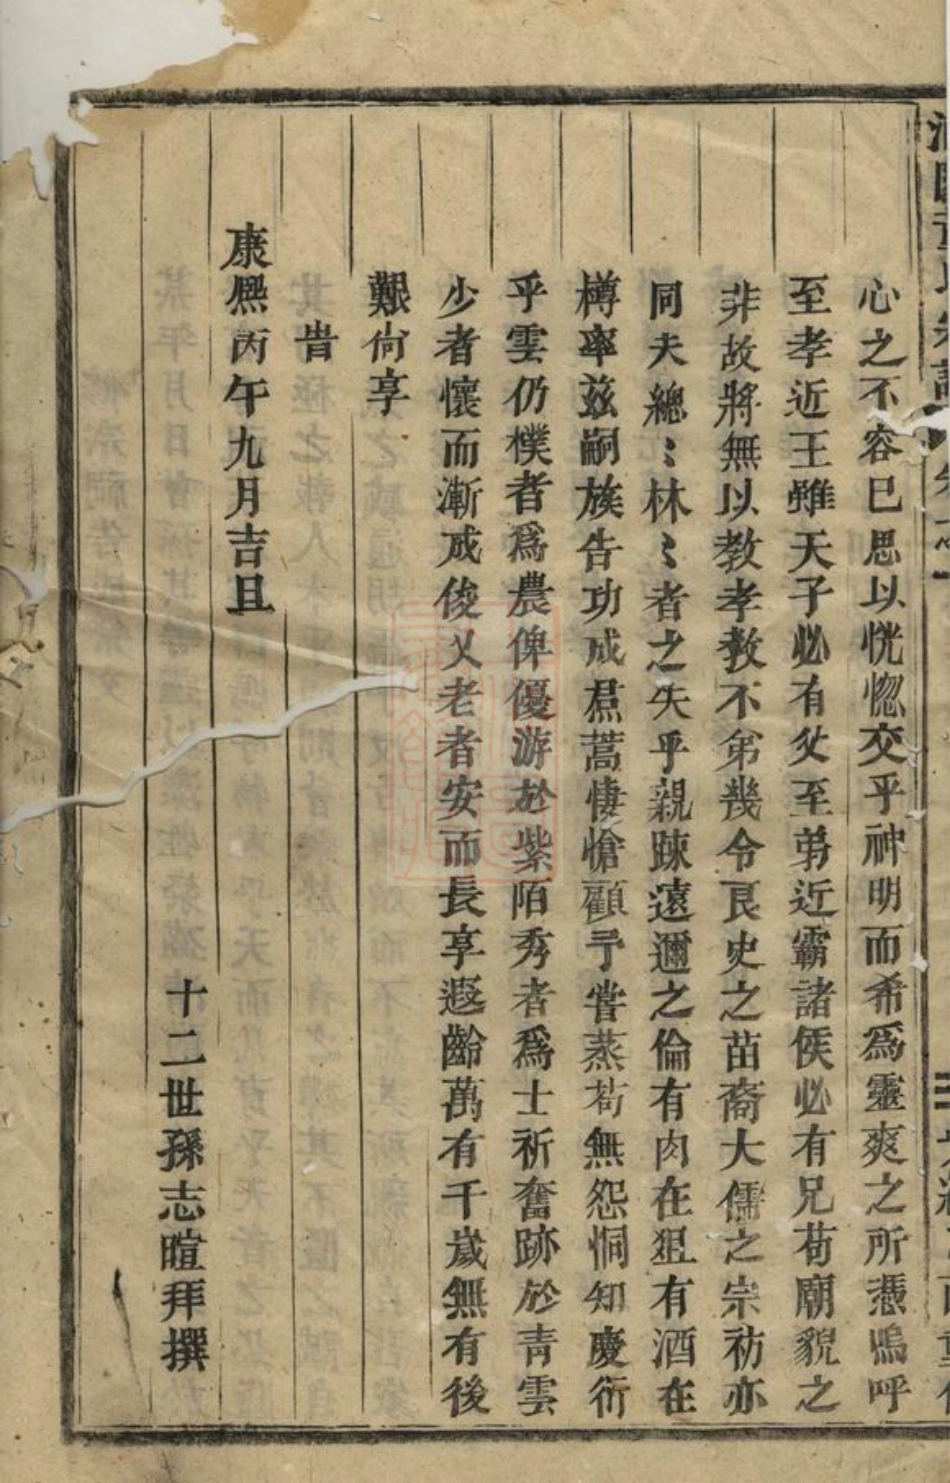 心之不容已思以恍惚交乎神明而希爲靈爽之所憑嗚呼
至孝近王雖天子必有父至弟近霸諸侯必有兄苟廟貌之
非故將無以敎孝敎不弟幾令艮史之苗裔大儒之宗祊亦
同夫總〻林〻者之失乎親踈遠邇之倫有肉在俎有酒在
樽率兹嗣族告功成焄蒿悽愴顧予嘗蒸苟無怨恫知慶衍
乎雲仍樸者爲農俾優游於紫陌秀者爲士祈奮跡於靑雲
少者懷而漸成俊乂老者安而長享遐齡萬有千歲無有後
艱尙享
旹
康熈丙午九月吉旦
十二世孫志暄拜撰